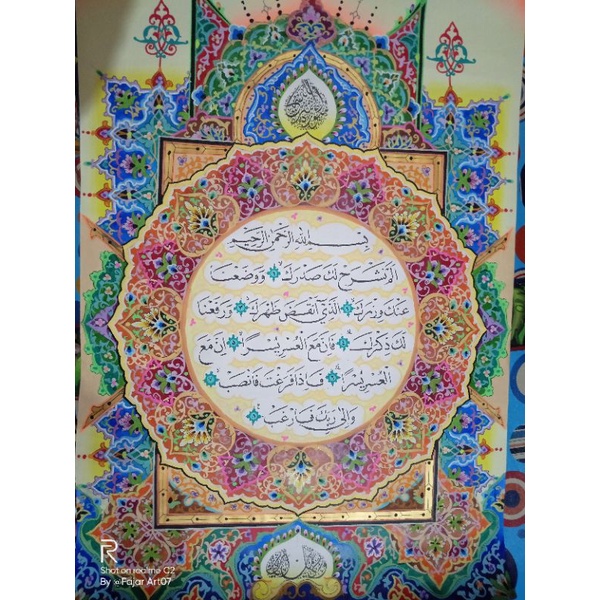 بِسْمِ اللهِ الرَّحْمٰنِ الرَّحِيْمِ
اَلَمْ نَشْرَحْ لَكَ صَدْرَكَ ۝١ وَوَضَعْنَا
عَنْكَ وِزْرَكَ ۝٢ الَّذِيْٓ اَنْقَضَ ظَهْرَكَ ۝٣ وَرَفَعْنَا
لَكَ ذِكْرَكَ ۝٤ فَاِنَّ مَعَ الْعُسْرِ يُسْرًا ۝٥ اِنَّ مَعَ
الْعُسْرِ يُسْرًا ۝٦ فَاِذَا فَرَغْتَ فَانْصَبْ ۝٧
وَاِلٰى رَبِّكَ فَارْغَبْ ۝٨
R
Shot on realme C2
By :@Fajar Art07